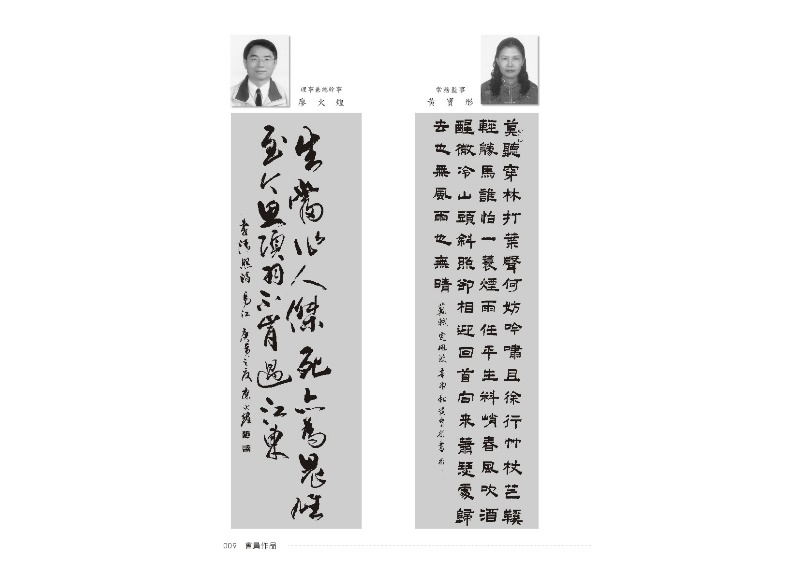 理事兼總幹事
廖火煌
常務監事
黃寶彤
生當作人傑死亦為鬼雄
至今思項羽不肯過江東
李清照詩烏江庚寅之夏廖火煌
莫聽穿林打葉聲何妨吟嘯且徐行竹杖芒鞵
輕勝馬誰怕一蓑煙雨任平生料峭春風吹酒
醒微冷山頭斜照卻相迎回首向來蕭瑟處歸
去也無風雨也無晴
蘇軾定風波辛卯秋黃寶彤書
009 會員作品